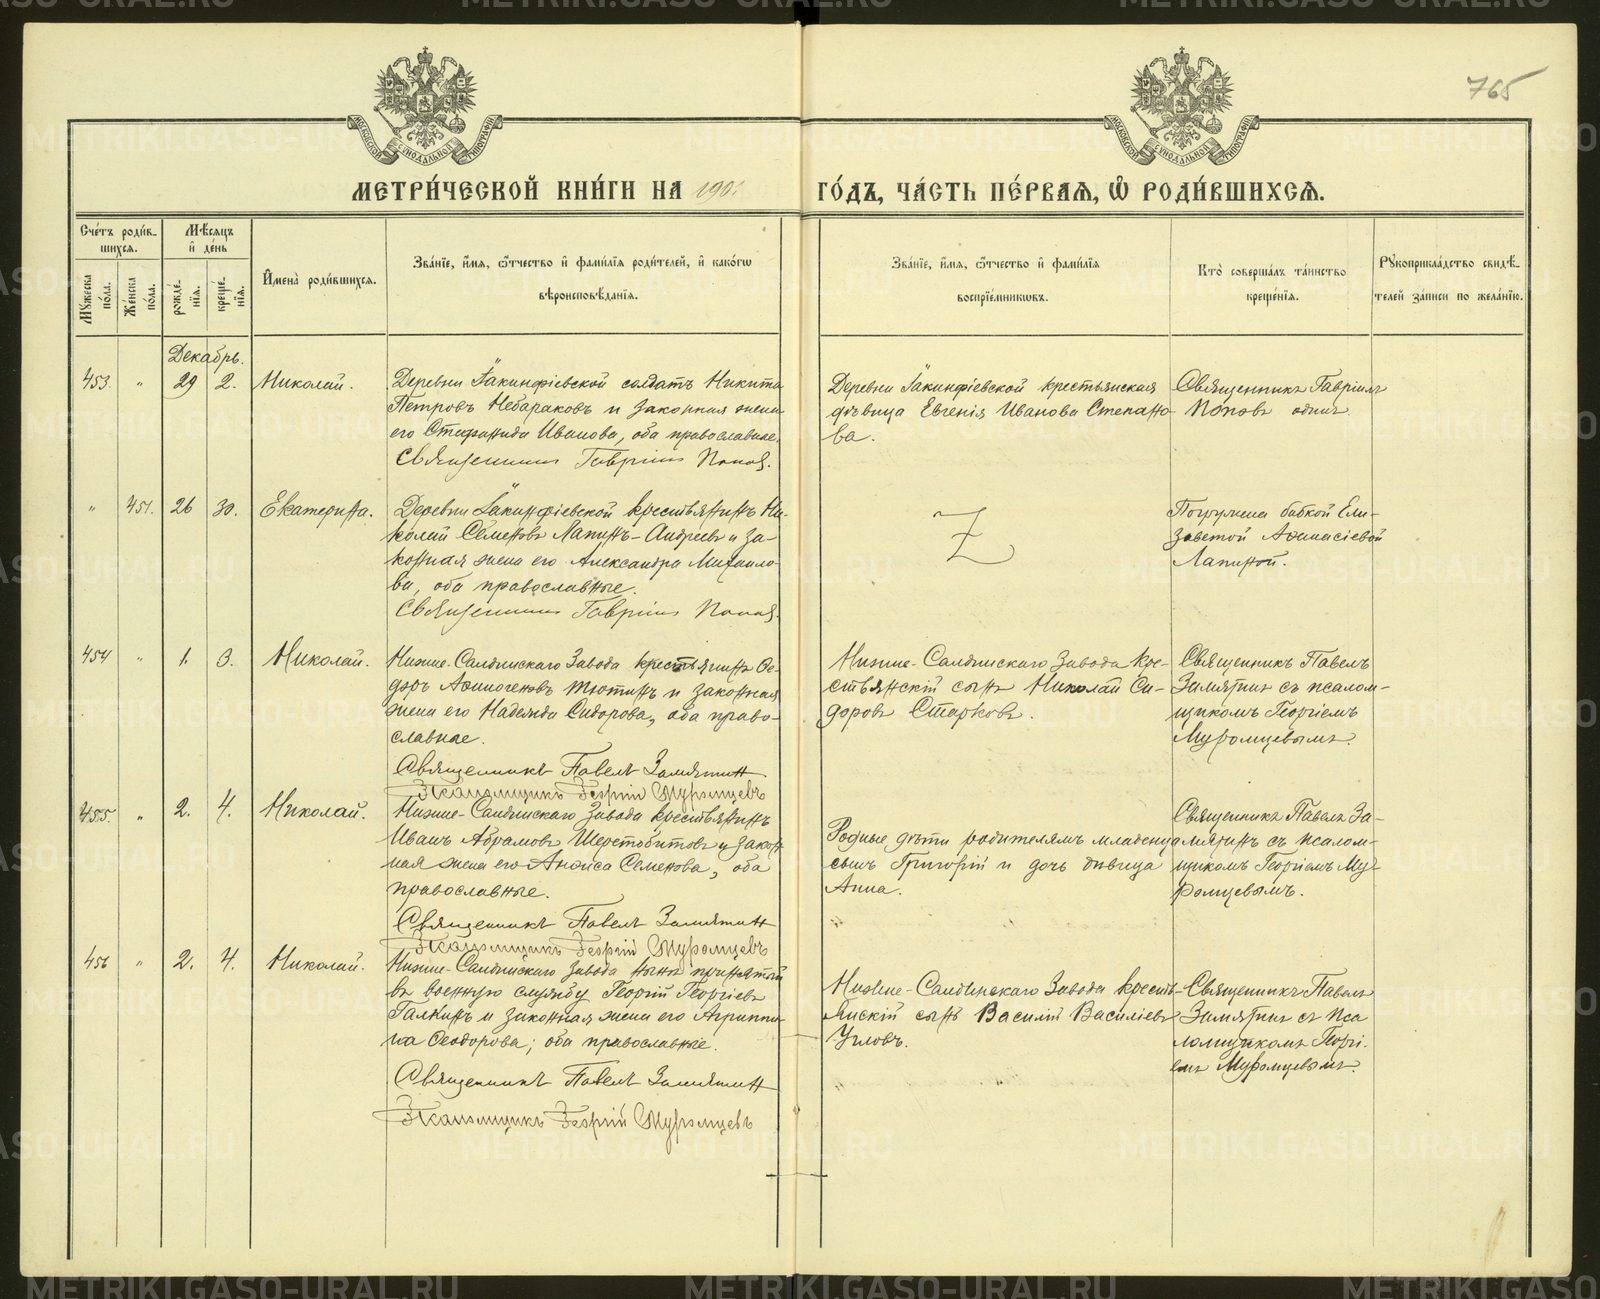 765
МЕТРИ́ЧЕСКОЙ КНИ́ГИ НА 190 ГО́ДЪ, ЧА́СТЬ ПЕ́РВАѦ, Ѡ҆ РОДИ́ВШИХСѦ.
Сче́тъ роди́в-
шихсѧ.
Мꙋ́жеска по́ла.
Же́нска по́ла.
Мѣ́сѧцъ
и҆ де́нь
рожде́-
нїѧ.
креще́-
нїѧ.
И҆мена̀ роди́вшихсѧ.
Зва́нїе, и҆́мѧ, ѻ҆́тчество и҆ фами́лїѧ роди́телей, и҆ како́гѡ
вѣроисповѣ́данїѧ.
Зва́нїе, и҆́мѧ, ѻ҆́тчество и҆ фами́лїѧ
воспрїе́мникѡвъ.
Кто̀ соверша́лъ та́инство
креще́нїѧ.
Рꙋкоприкла́дство свидѣ́-
телей за́писи по жела́нїю.
Декабрь.
453. " 29 2. Николай.
Деревни Іакинфіевской солдатъ Никита
Петровъ Небараковъ и законная жена
его Стефанида Иванова, оба православные.
Священникъ Гавріилъ Поповъ.
Деревни Іакинфіевской крестьянская
дѣвица Евгенія Иванова Степано-
ва.
Священникъ Гавріилъ
Поповъ одинъ.
" 451. 26 30. Екатерина.
Деревни Іакинфіевской крестьянинъ Ни-
колай Семеновъ Лапинъ-Андреевъ и за-
конная жена его Александра Михаило-
ва, оба православные.
Священникъ Гавріилъ Поповъ.
Погружена бабкой Ели-
заветой Аѳанасіевой
Лапиной.
454 " 1. 3. Николай.
Нижне-Салдинскаго Завода крестьянинъ Ѳе-
доръ Аѳиногеновъ Тютинъ и законная
жена его Надежда Сидорова, оба право-
славные.
Священникъ Павелъ Замятин
Псаломщикъ Георгій Муромцевъ
Нижне-Салдинскаго Завода кре-
стьянскій сынъ Николай Си-
доровъ Старковъ.
Священникъ Павелъ
Замятинъ съ псалом-
щикомъ Георгіемъ
Муромцевымъ.
455. " 2. 4. Николай.
Нижне-Салдинскаго Завода крестьянинъ
Иванъ Абрамовъ Шерстобитовъ и закон-
ная жена его Анѳиса Семенова, оба
православные.
Священникъ Павелъ Замятин
Псаломщикъ Георгій Муромцевъ
Родные дѣти родителямъ младенца
сынъ Григорій и дочь дѣвица
Анна.
Священникъ Павелъ За-
мятинъ съ псалом-
щикомъ Георгіемъ Му-
ромцевымъ.
456 " 2. 4. Николай.
Нижне-Салдинскаго Завода нынѣ принятый
въ военную службу Георгій Георгіевъ
Галкинъ и законная жена его Агриппи-
на Ѳеодорова; оба православные.
Священникъ Павелъ Замятин
Псаломщикъ Георгій Муромцевъ
Нижне-Салдинскаго Завода кресть-
янскій сынъ Василій Василіевъ
Угловъ.
Священникъ Павелъ
Замятинъ съ пса
ломщикомъ Георгі-
емъ Муромцевымъ.
METRIKI.GASO-URAL.RU